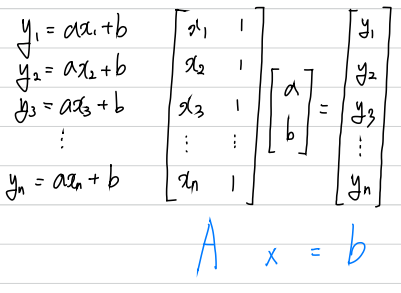 y₁ = ax₁+b
y₂ = ax₂+b
y₃ = ax₃+b
⋮
yₙ = axₙ+b
[x₁ 1
x₂ 1
x₃ 1
⋮ ⋮
xₙ 1]
[a
b]
=
[y₁
y₂
y₃
⋮
yₙ]
A x = b